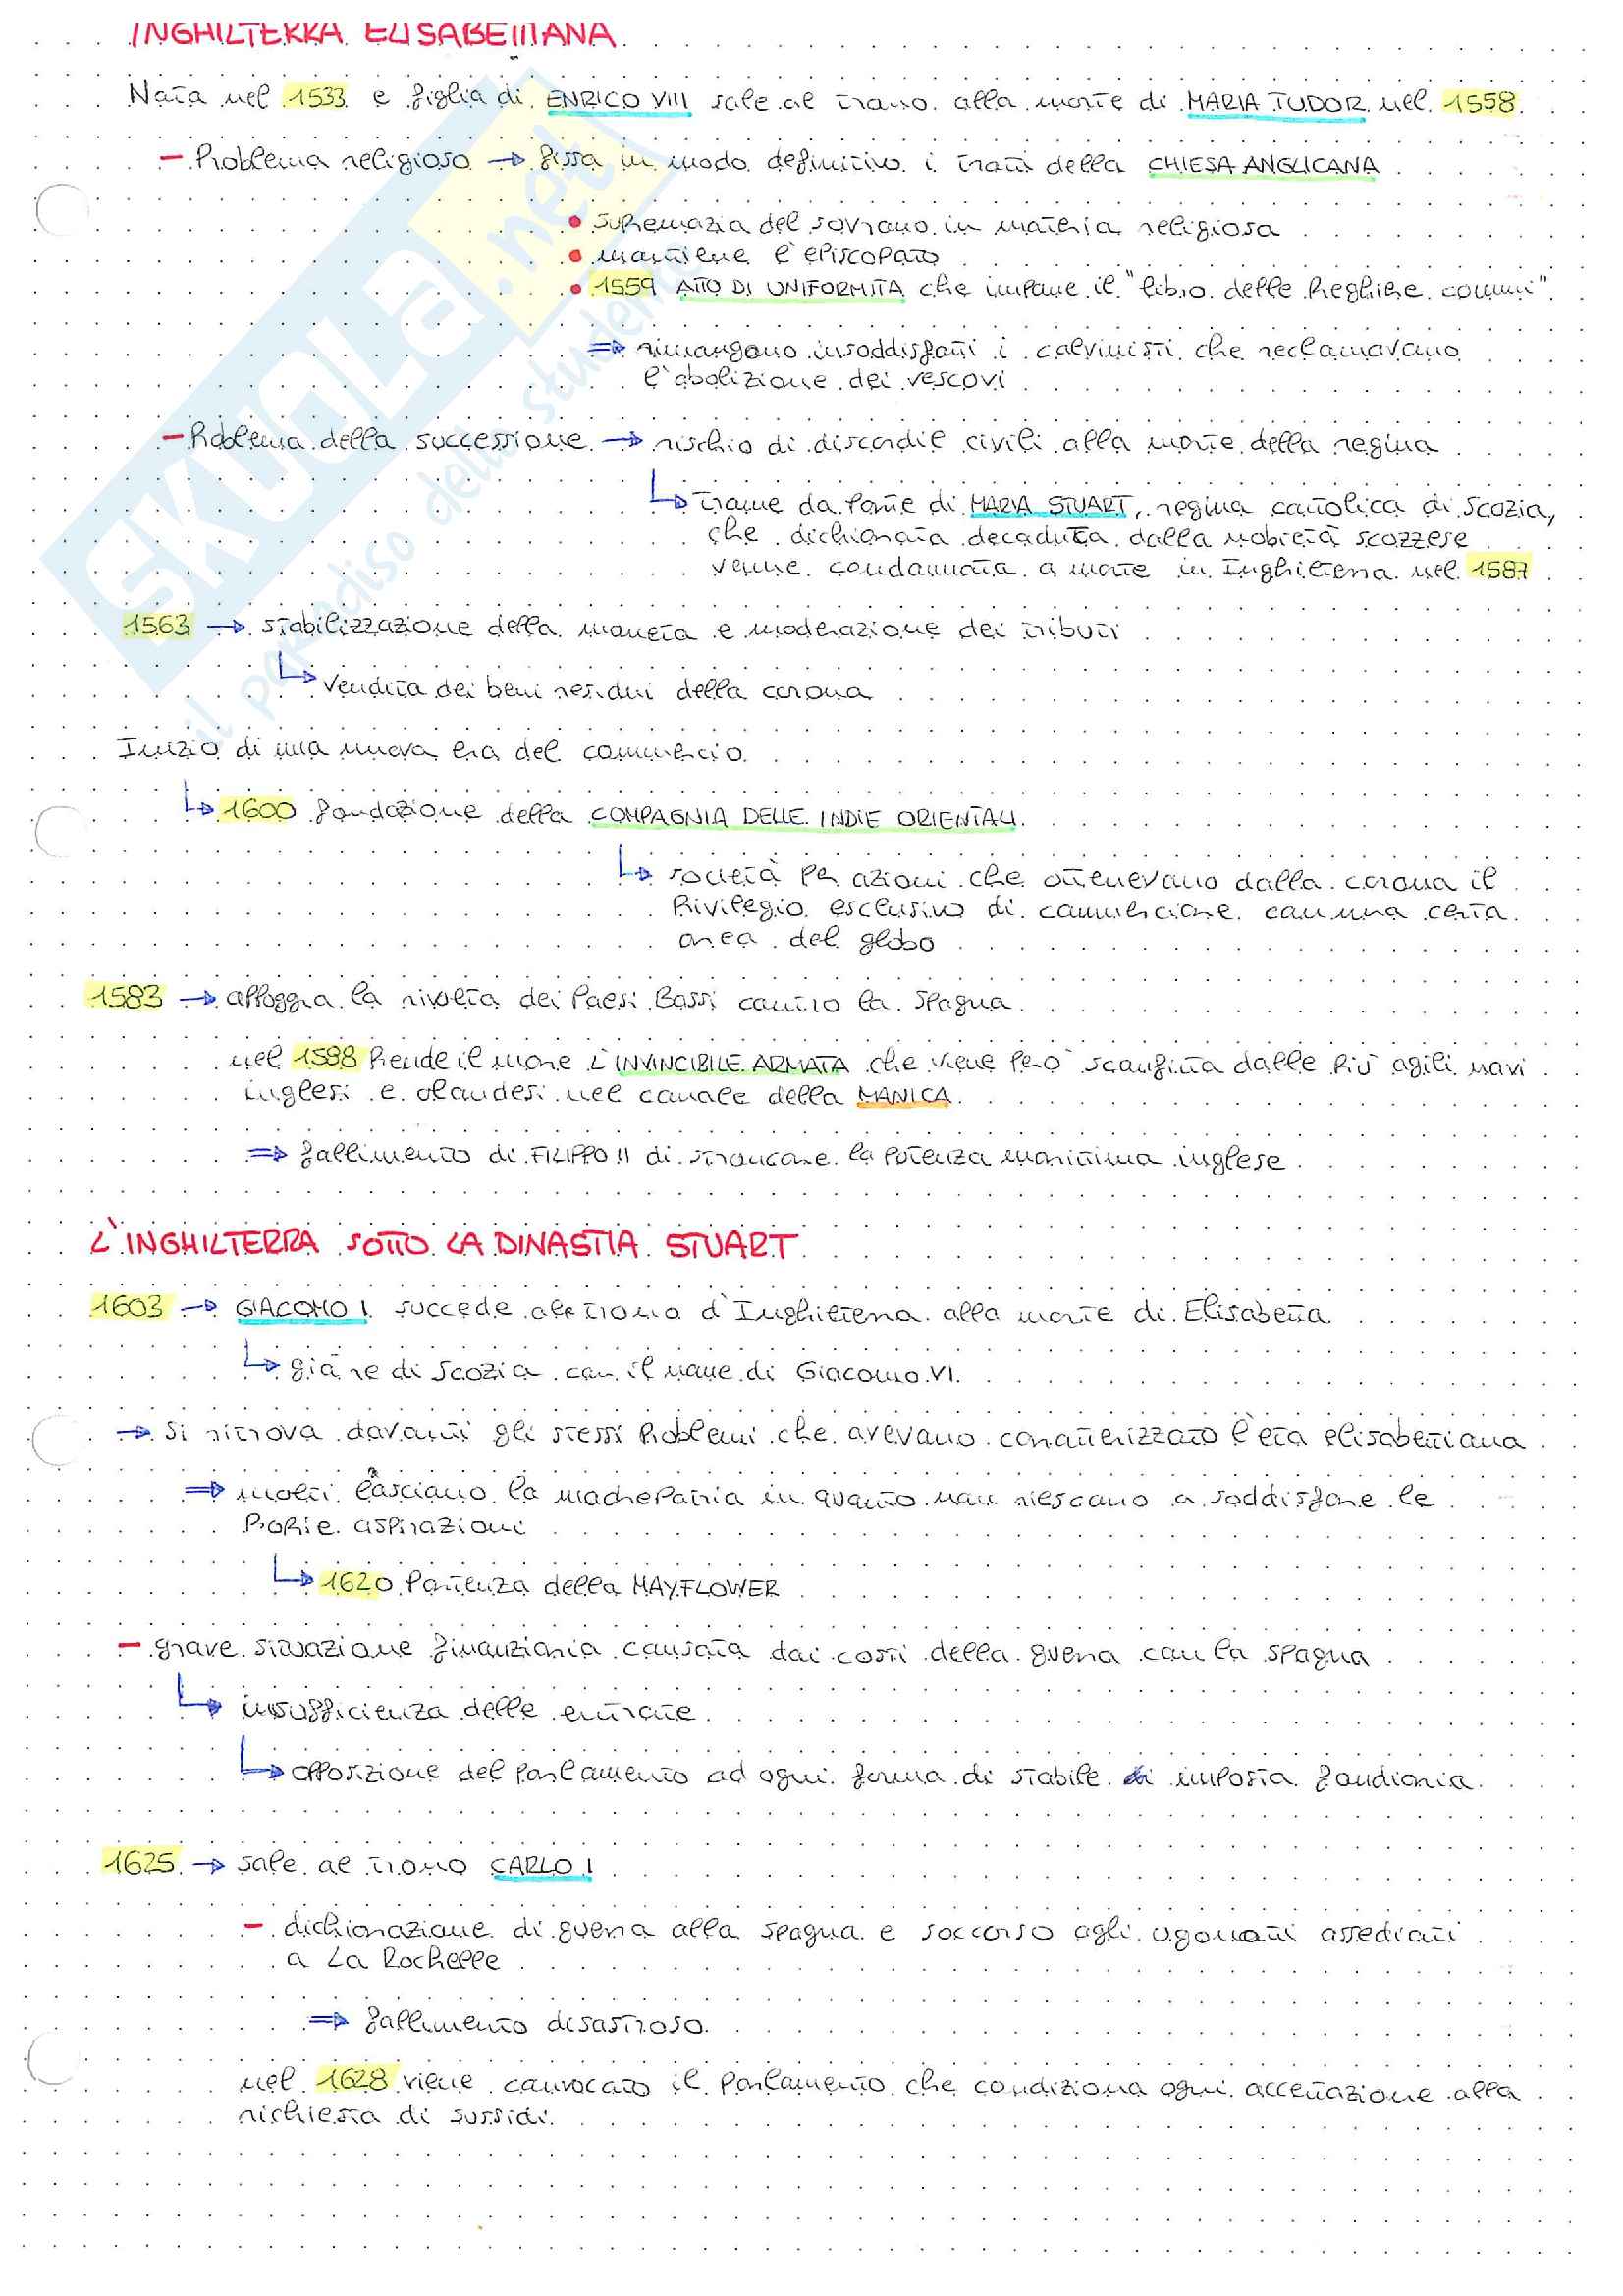 INGHILTERRA ELISABETTIANA
Nata nel 1533 e figlia di ENRICO VIII sale al trono alla morte di MARIA TUDOR nel 1558
- Problema religioso → fissa in modo definitivo i tratti della CHIESA ANGLICANA
• supremazia del sovrano in materia religiosa
• mantiene l'episcopato
• 1559 ATTO DI UNIFORMITÀ che impone il "libro delle preghiere comuni"
⇒ rimangono insoddisfatti i calvinisti che reclamavano
l'abolizione dei vescovi
- Problema della successione → rischio di discordie civili alla morte della regina
↳ trame da parte di MARIA STUART, regina cattolica di Scozia,
che dichiarata decaduta dalla nobiltà scozzese
venne condannata a morte in Inghilterra nel 1587
1563 → stabilizzazione della moneta e moderazione dei tributi
↳ vendita dei beni residui della corona
Inizio di una nuova era del commercio
↳ 1600 fondazione della COMPAGNIA DELLE INDIE ORIENTALI
↳ società per azioni che ottenevano dalla corona il
privilegio esclusivo di commerciare con una certa
area del globo
1583 → appoggia la rivolta dei Paesi Bassi contro la Spagna
nel 1588 prende il mare L'INVINCIBILE ARMATA che viene però scanfitta dalle più agili navi
inglesi e olandesi nel canale della MANICA
⇒ fallimento di FILIPPO II di stroncare la potenza marittima inglese
L'INGHILTERRA SOTTO LA DINASTIA STUART
1603 → GIACOMO I succede al trono d'Inghilterra alla morte di Elisabetta
↳ già re di Scozia con il nome di Giacomo VI
→ si ritrova davanti gli stessi problemi che avevano caratterizzato l'età elisabettiana
⇒ molti lasciano la madrepatria in quanto non riescono a soddisfare le
proprie aspirazioni
↳ 1620 partenza della MAYFLOWER
- grave situazione finanziaria causata dai costi della guerra con la Spagna
↳ insufficienza delle entrate
↳ opposizione del Parlamento ad ogni forma di stabile di imposta fondiaria
1625 → sale al trono CARLO I
- dichiarazione di guerra alla Spagna e soccorso agli ugonotti assediati
a La Rochelle
⇒ fallimento disastroso
nel 1628 viene convocato il Parlamento che condiziona ogni accettazione alla
richiesta di sussidi
SKUOLA.net
il paradiso dello studente